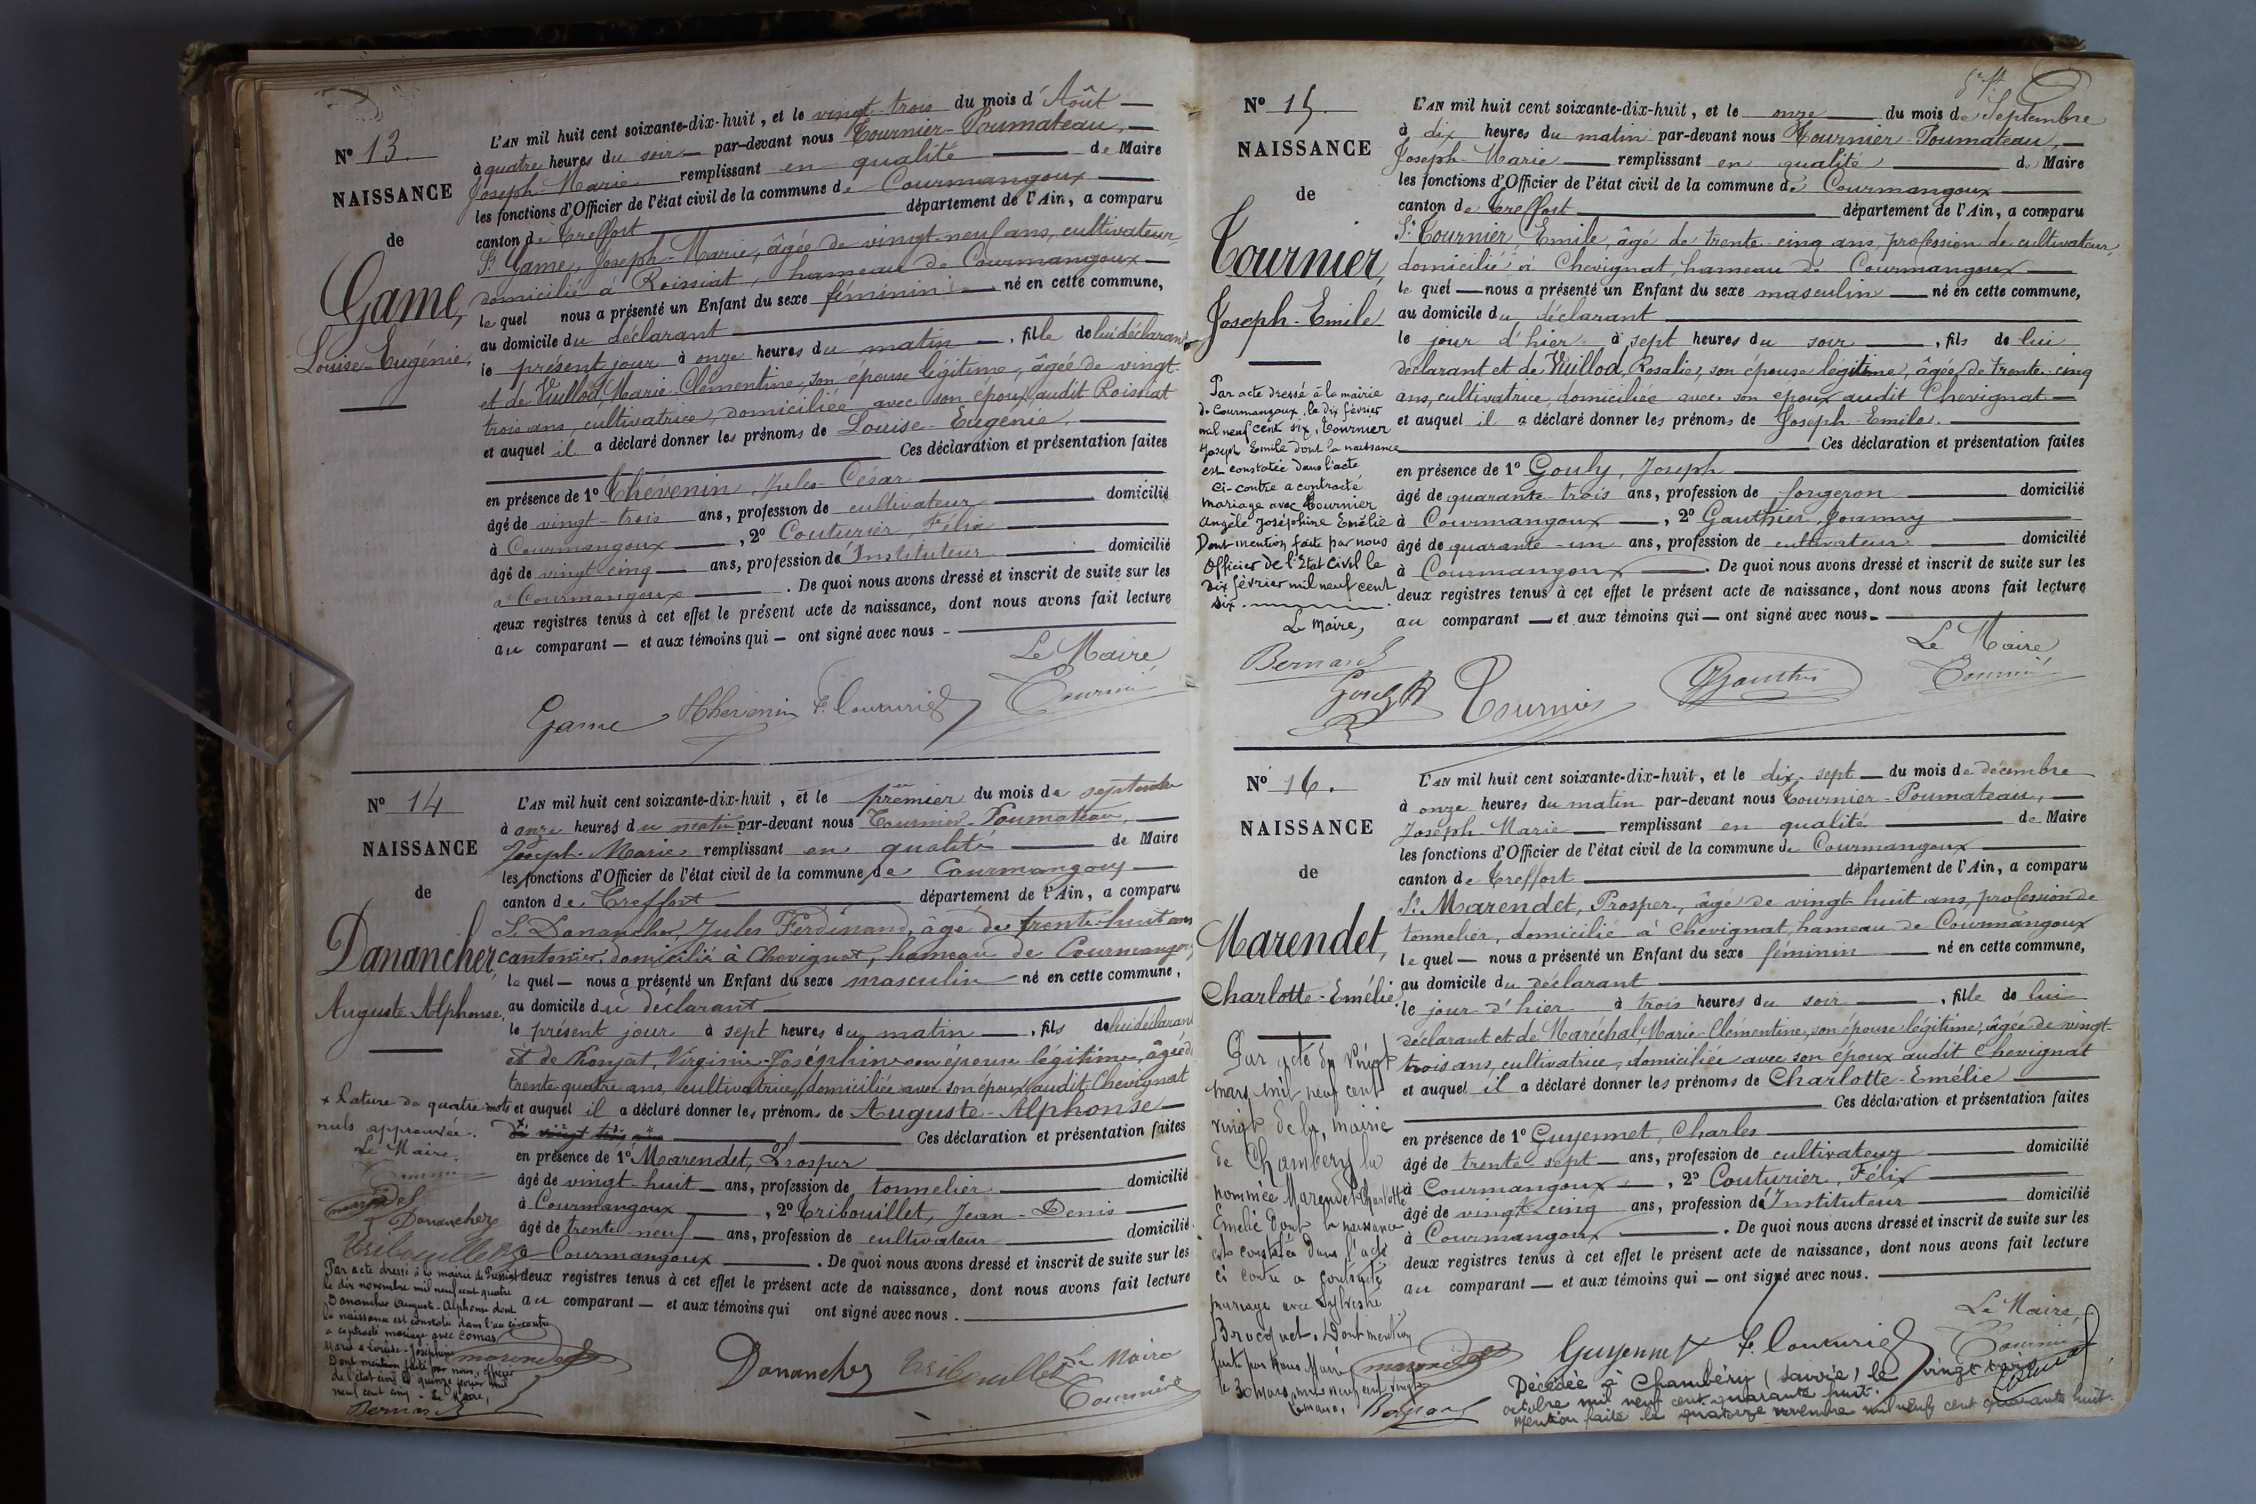 N° 13.
NAISSANCE
de
Game,
Louise-Eugénie,
L'AN mil huit cent soixante-dix-huit, et le vingt-trois du mois d'Août
à quatre heures du soir par-devant nous Tournier-Poumateau,
Joseph-Marie remplissant en qualité de Maire
les fonctions d'Officier de l'état civil de la commune de Courmangoux
canton de Treffort département de l'Ain, a comparu
Sr Game, Joseph-Marie, âgée de vingt-neuf ans, cultivateur,
domicilié à Roissiat, hameau de Courmangoux
le quel nous a présenté un Enfant du sexe féminin né en cette commune,
au domicile du déclarant
le présent jour à onze heures du matin, fille de lui déclarant
et de Vuillod Marie Clémentine, son épouse légitime, âgée de vingt-
trois ans, cultivatrice, domiciliée avec son époux, audit Roissiat
et auquel il a déclaré donner les prénoms de Louise-Eugénie.
Ces déclaration et présentation faites
en présence de 1° Thévenin, Jules-César
âgé de vingt-trois ans, profession de cultivateur domicilié
à Courmangoux, 2° Couturier, Félix
âgé de vingt-cinq ans, profession d'Instituteur domicilié
à Courmangoux. De quoi nous avons dressé et inscrit de suite sur les
deux registres tenus à cet effet le présent acte de naissance, dont nous avons fait lecture
au comparant — et aux témoins qui — ont signé avec nous -
Le Maire,
Game Thévenin F. Couturier Tournier
N° 14
NAISSANCE
de
Danancher,
Auguste-Alphonse,
L'AN mil huit cent soixante-dix-huit, et le premier du mois de septembre
à onze heures du matin par-devant nous Tournier-Poumateau,
Joseph-Marie remplissant en qualité de Maire
les fonctions d'Officier de l'état civil de la commune de Courmangoux
canton de Treffort département de l'Ain, a comparu
Sr Danancher, Jules Ferdinand, âgé de trente-huit ans
cantonnier, domicilié à Chevignat, hameau de Courmangoux,
le quel — nous a présenté un Enfant du sexe masculin né en cette commune,
au domicile du déclarant
le présent jour à sept heures du matin, fils de lui déclarant
et de Ronjat, Virginie-Joséphine son épouse légitime, âgée de
trente quatre ans, cultivatrice, domiciliée avec son époux, audit Chevignat
et auquel il a déclaré donner les prénoms de Auguste-Alphonse
Ces déclaration et présentation faites
en présence de 1° Marendet, Prosper
âgé de vingt-huit ans, profession de tonnelier domicilié
à Courmangoux, 2° Tribouillet, Jean-Denis
âgé de trente-neuf ans, profession de cultivateur domicilié
à Courmangoux. De quoi nous avons dressé et inscrit de suite sur les
deux registres tenus à cet effet le présent acte de naissance, dont nous avons fait lecture
au comparant — et aux témoins qui ont signé avec nous.
Le Maire
Marendet Danancher Tribouillet Tournier
x Rature de quatre mots
nuls approuvée.
Le Maire,
Tournier
Marendet
Danancher
Tribouillet
Par acte dressé à la mairie de
le dix novembre mil neuf cent quatre
Danancher Auguste-Alphonse dont
la naissance est constatée dans l'acte ci-contre
a contracté mariage avec Comas
Marie Louise-Joséphine
Dont mention faite par nous, officier
de l'état civil le quinze février mil
neuf cent cinq. Le Maire,
Bernard
N° 15.
NAISSANCE
de
Tournier,
Joseph-Emile
L'AN mil huit cent soixante-dix-huit, et le onze du mois de Septembre
à dix heures du matin par-devant nous Tournier-Poumateau,
Joseph-Marie remplissant en qualité de Maire
les fonctions d'Officier de l'état civil de la commune de Courmangoux
canton de Treffort département de l'Ain, a comparu
Sr Tournier, Emile, âgé de trente-cinq ans, profession de cultivateur,
domicilié à Chevignat, hameau de Courmangoux
le quel — nous a présenté un Enfant du sexe masculin — né en cette commune,
au domicile du déclarant
le jour d'hier à sept heures du soir, fils de lui
déclarant et de Vuillod, Rosalie, son épouse légitime, âgée de trente-cinq
ans, cultivatrice, domiciliée avec son époux audit Chevignat
et auquel il a déclaré donner les prénoms de Joseph-Emile.
Ces déclaration et présentation faites
en présence de 1° Gouly, Joseph
âgé de quarante-trois ans, profession de forgeron domicilié
à Courmangoux, 2° Gauthier, Joanny
âgé de quarante-un ans, profession de cultivateur domicilié
à Courmangoux. De quoi nous avons dressé et inscrit de suite sur les
deux registres tenus à cet effet le présent acte de naissance, dont nous avons fait lecture
au comparant — et aux témoins qui — ont signé avec nous.
Le Maire
Gouly Tournier Gauthier Tournier
Par acte dressé à la mairie
de Courmangoux, le dix février
mil neuf cent six, Tournier
Joseph Emile dont la naissance
est constatée dans l'acte
ci-contre a contracté
mariage avec Tournier
Angèle Joséphine Emélie
Dont mention faite par nous
Officier de l'Etat Civil le
dix février mil neuf cent
six.
Le Maire,
Bernard
N° 16.
NAISSANCE
de
Marendet,
Charlotte-Emélie,
L'AN mil huit cent soixante-dix-huit, et le dix-sept du mois de décembre
à onze heures du matin par-devant nous Tournier-Poumateau,
Joseph-Marie remplissant en qualité de Maire
les fonctions d'Officier de l'état civil de la commune de Courmangoux
canton de Treffort département de l'Ain, a comparu
Sr Marendet, Prosper, âgé de vingt-huit ans, profession de
tonnelier, domicilié à Chevignat, hameau de Courmangoux
le quel — nous a présenté un Enfant du sexe féminin né en cette commune,
au domicile du déclarant
le jour d'hier à trois heures du soir, fille de lui
déclarant et de Maréchal, Marie-Clémentine, son épouse légitime, âgée de vingt-
trois ans, cultivatrice, domiciliée avec son époux audit Chevignat
et auquel il a déclaré donner les prénoms de Charlotte-Emélie
Ces déclaration et présentation faites
en présence de 1° Guyennet, Charles
âgé de trente-sept ans, profession de cultivateur domicilié
à Courmangoux, 2° Couturier, Félix
âgé de vingt-cinq ans, profession d'Instituteur domicilié
à Courmangoux. De quoi nous avons dressé et inscrit de suite sur les
deux registres tenus à cet effet le présent acte de naissance, dont nous avons fait lecture
au comparant — et aux témoins qui — ont signé avec nous.
Le Maire,
Marendet Guyennet F. Couturier Tournier
Par acte du vingt
mars mil neuf cent
vingt de la mairie
de Chambéry la
nommée Marendet Charlotte
Emélie dont la naissance
est constatée dans l'acte
ci contre a contracté
mariage avec Sylvestre
Brocquet. Dont mention
faite par Nous Maire
le 30 mars mil neuf cent vingt
Le maire,
Décédée à Chambéry (Savoie) le vingt trois
octobre mil neuf cent quarante huit.
Mention faite le quatorze novembre mil neuf cent quarante huit.